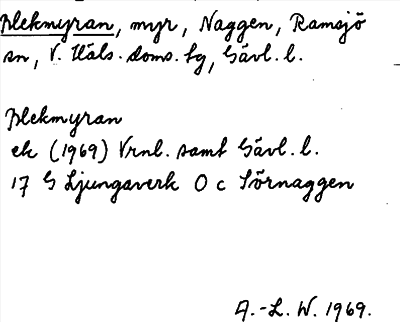 Blekmyran, myr, Naggen, Ramsjö
sn, V. Häls. doms. tg, Gävl. l.
Blekmyran
ek (1969) Vrnl. samt Gävl. l.
17 G Ljungaverk O c Sörnaggen
A.-L. W. 1969.